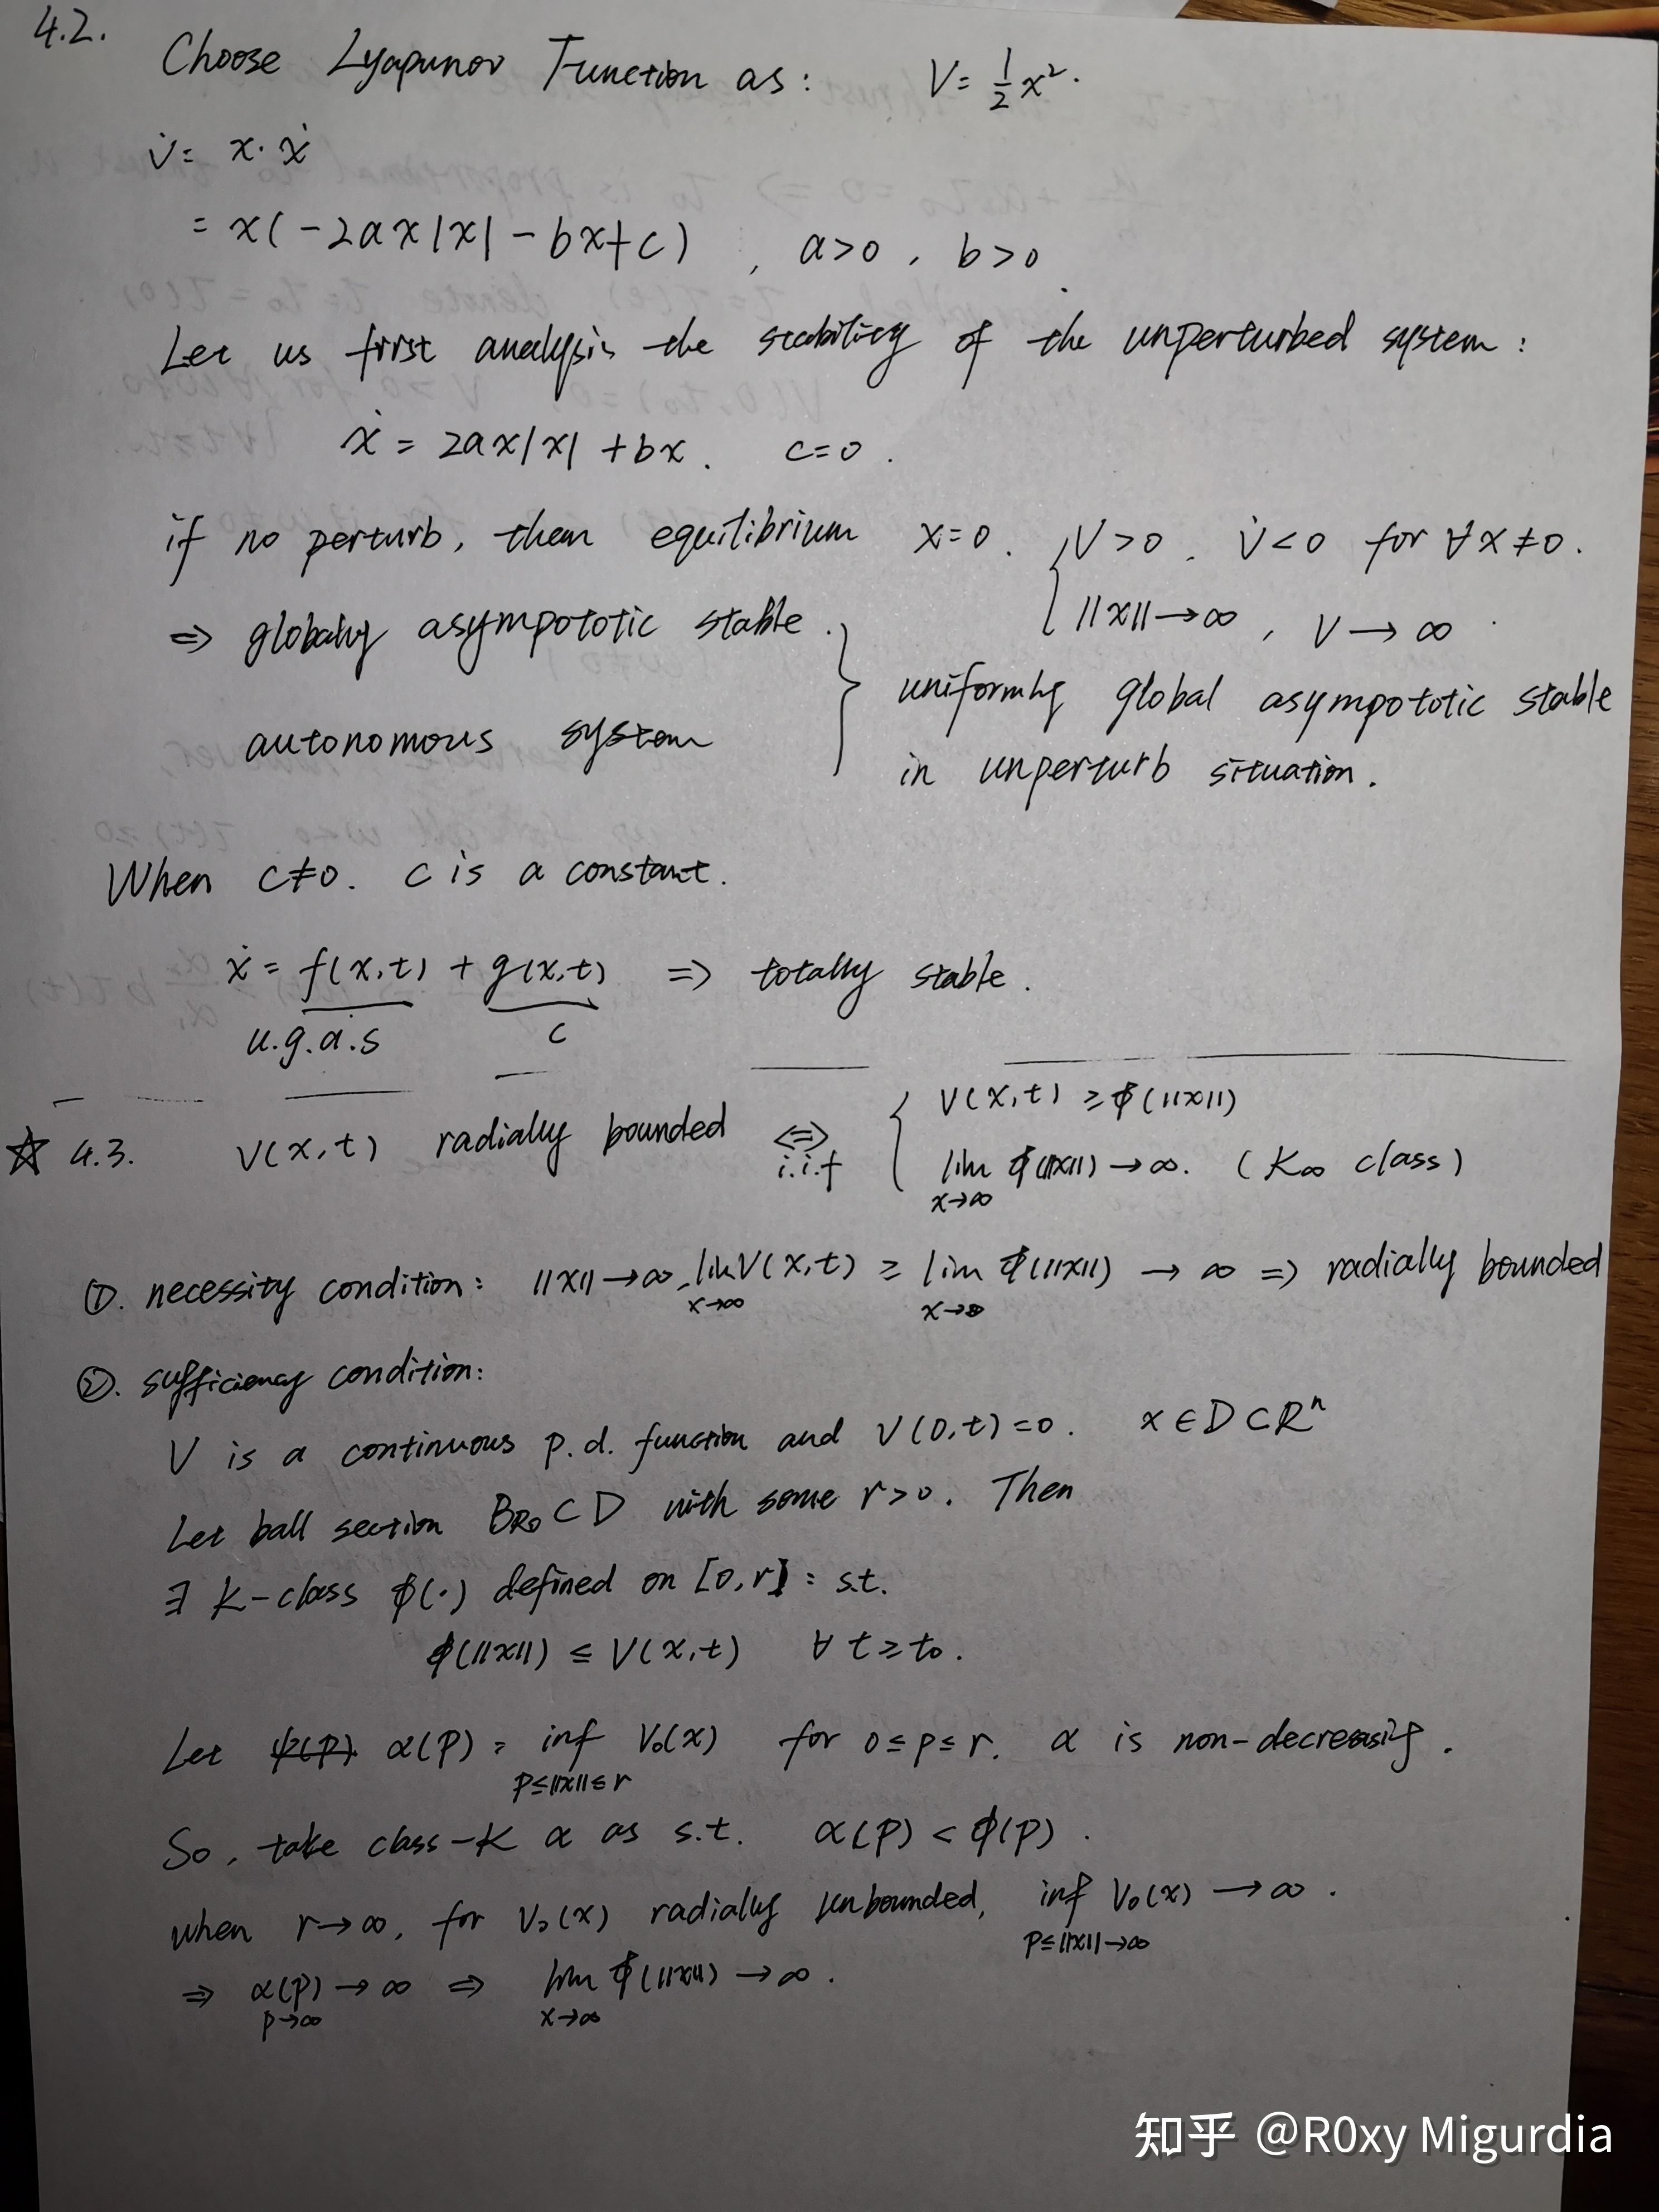 4.2. Choose Lyapunov Function as: V = 1/2 x².
V̇ = x·ẋ
= x(-2ax|x| - bx + c), a>0, b>0.
Let us first analysis the stability of the unperturbed system:
ẋ = 2ax|x| + bx. c=0.
if no perturb, then equilibrium x=0. { V>0. V̇<0 for ∀x≠0.
||x||→∞, V→∞.
⇒ globally asympototic stable.
autonomous system } uniformly global asympototic stable
in unperturb situation.
When c≠0. c is a constant.
ẋ = f(x,t) + g(x,t) ⇒ totally stable.
u.g.a.s c
☆ 4.3. V(x,t) radially bounded ⇔ i.i.f { V(x,t) ≥ ϕ(||x||)
lim x→∞ ϕ(||x||) → ∞. (K∞ class)
①. necessity condition: ||x||→∞, lim x→∞ V(x,t) ≥ lim x→∞ ϕ(||x||) → ∞ ⇒ radially bounded
②. sufficiency condition:
V is a continuous p.d. function and V(0,t)=0. x∈D⊂Rⁿ
Let ball section B_R0 ⊂ D with some r>0. Then
∃ K-class ϕ(·) defined on [0,r]: s.t.
ϕ(||x||) ≤ V(x,t) ∀ t≥t₀.
Let ψ(p). α(p) = inf p≤||x||≤r V₀(x) for 0≤p≤r. α is non-decreasing.
So, take class-K α as s.t. α(p) < ϕ(p).
when r→∞, for V₀(x) radially unbounded, inf p≤||x||→∞ V₀(x) → ∞.
⇒ α(p) p→∞ → ∞ ⇒ lim x→∞ ϕ(||x||) → ∞.
知乎 @R0xy Migurdia